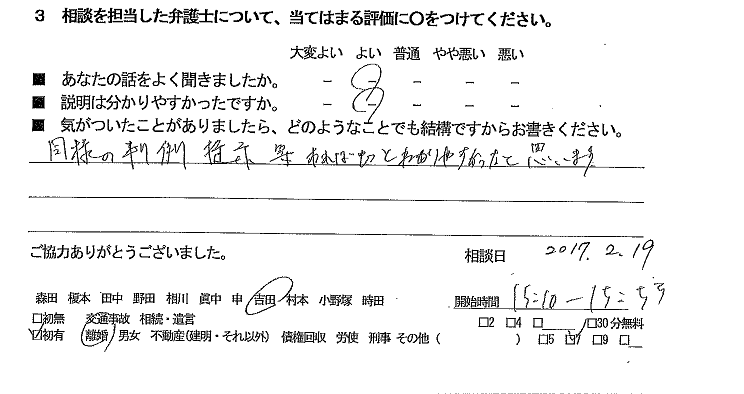 3 相談を担当した弁護士について、当てはまる評価に〇をつけてください。
大変よい よい 普通 やや悪い 悪い
■ あなたの話をよく聞きましたか。 － － － － －
■ 説明は分かりやすかったですか。 － － － － －
■ 気がついたことがありましたら、どのようなことでも結構ですからお書きください。
同様の判例 提示 等 あればもっとわかりやすかったと思います
ご協力ありがとうございました。 相談日 2017.2.19
森田 榎本 田中 野田 相川 眞中 申 吉田 村本 小野塚 時田 開始時間 15:10 － 15:55
□初無 交通事故 相続・遺言 □2 □4 □ /□30分無料
☑初有 離婚 男女 不動産(建明・それ以外) 債権回収 労使 刑事 その他 ( ) □5 ☑7 □9 □